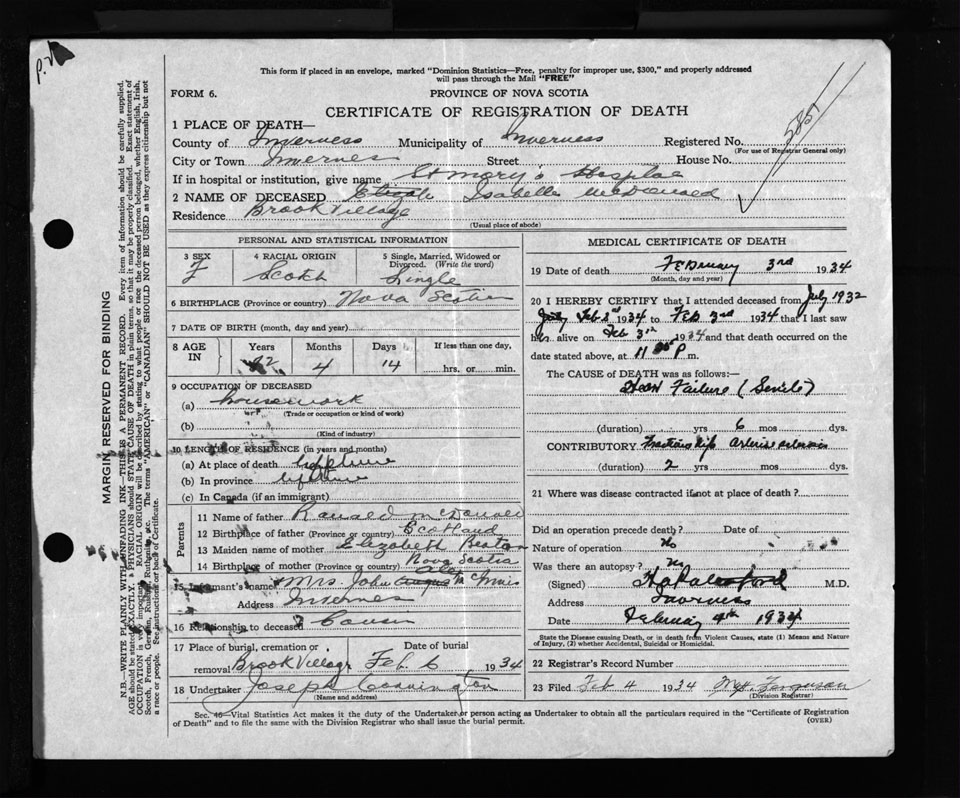 This form if placed in an envelope, marked "Dominion Statistics—Free, penalty for improper use, $300," and properly addressed
will pass through the Mail "FREE"
FORM 6.
PROVINCE OF NOVA SCOTIA
CERTIFICATE OF REGISTRATION OF DEATH
1 PLACE OF DEATH—
County of Inverness Municipality of Inverness Registered No.
(For use of Registrar General only)
City or Town Inverness Street House No.
If in hospital or institution, give name St Mary's Hospital
2 NAME OF DECEASED Isabella McDonald
Residence Brook Village
(Usual place of abode)
PERSONAL AND STATISTICAL INFORMATION
3 SEX 4 RACIAL ORIGIN 5 Single, Married, Widowed or Divorced. (Write the word)
F Scotch Single
6 BIRTHPLACE (Province or country) Nova Scotia
7 DATE OF BIRTH (month, day and year)
8 AGE IN Years Months Days If less than one day,
4 14 hrs. or min.
9 OCCUPATION OF DECEASED
(a) housework
(Trade or occupation or kind of work)
(b)
(Kind of industry)
10 LENGTH OF RESIDENCE (in years and months)
(a) At place of death lifetime
(b) In province lifetime
(c) In Canada (if an immigrant)
Parents
11 Name of father Ranald McDonald
12 Birthplace of father (Province or country) Scotland
13 Maiden name of mother Elizabeth Beaton
14 Birthplace of mother (Province or country) Nova Scotia
15 Informant's name Mrs. John McInnis
Address Inverness
16 Relationship to deceased Cousin
17 Place of burial, cremation or removal Brook Village Date of burial Feb. 6 1934
18 Undertaker Joseph
(Name and address)
MEDICAL CERTIFICATE OF DEATH
19 Date of death February 3rd 1934
(Month, day and year)
20 I HEREBY CERTIFY that I attended deceased from July 1932
Feb 3rd 1934 to Feb 3rd 1934 that I last saw
her alive on Feb 3rd 1934 and that death occurred on the
date stated above, at 11 P m.
The CAUSE of DEATH was as follows:—
Heart Failure (Senile)
(duration) yrs 6 mos dys.
CONTRIBUTORY
(duration) 2 yrs mos dys.
21 Where was disease contracted if not at place of death?
Did an operation precede death? Date of
Nature of operation No
Was there an autopsy? No
(Signed) M.D.
Address Inverness
Date February 4th 1934
State the Disease causing Death, or in death from Violent Causes, state (1) Means and Nature
of Injury, (2) whether Accidental, Suicidal or Homicidal.
22 Registrar's Record Number
23 Filed Feb 4 1934 Ferguson
(Division Registrar)
Sec. 46—Vital Statistics Act makes it the duty of the Undertaker or person acting as Undertaker to obtain all the particulars required in the "Certificate of Registration
of Death" and to file the same with the Division Registrar who shall issue the burial permit. (OVER)
MARGIN RESERVED FOR BINDING
N.B.—WRITE PLAINLY WITH UNFADING INK—THIS IS A PERMANENT RECORD. Every item of information should be carefully supplied.
AGE should be stated EXACTLY. PHYSICIANS should STATE CAUSE OF DEATH in plain terms, so that it may be properly classified. Exact statement of
OCCUPATION is very important. RACIAL ORIGIN will be described by stating to what people or race the deceased person belonged, whether English, Irish,
Scotch, French, German, Russian, Ruthenian, etc. The terms "AMERICAN" or "CANADIAN" SHOULD NOT BE USED as they express citizenship but not
a race or people. See instructions on back of Certificate.